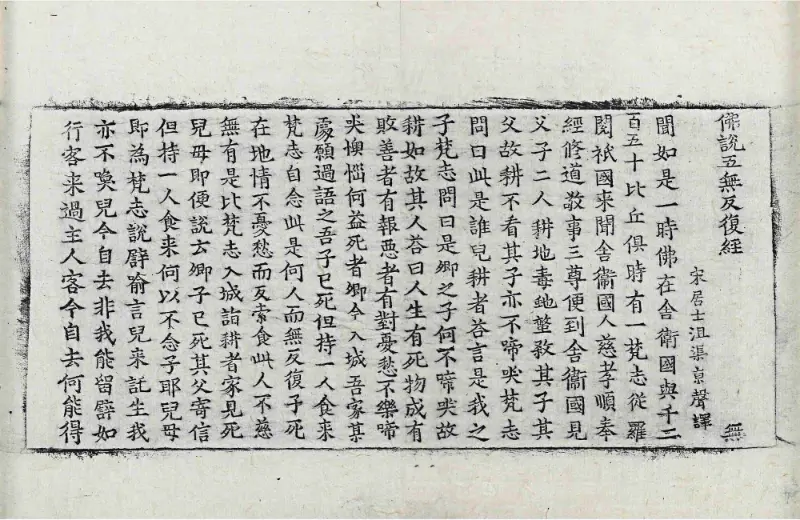 佛說五無反復經 無
宋居士沮渠京聲譯
聞如是一時佛在舍衛國與千二
百五十比丘俱時有一梵志從羅
閱祇國来聞舍衞國人慈孝順奉
經修道敬事三尊便到舍衞國見
父子二人耕地毒虵螫殺其子其
父故耕不看其子亦不啼哭梵志
問曰此是誰兒耕者荅言是我之
子梵志問曰是卿之子何不啼哭故
耕如故其人荅曰人生有死物成有
敗善者有報惡者有對憂愁不樂啼
哭懊惱何益死者卿今入城吾家某
處願過語之吾子已死但持一人食来
梵志自念此是何人而無反復子死
在地情不憂愁而反索食此人不慈
無有是比梵志入城詣耕者家見死
兒母即便說云卿子已死其父寄信
但持一人食来何以不念子耶兒母
即為梵志說譬喻言兒来託生我
亦不喚兒今自去非我能留譬如
行客来過主人客今自去何能得